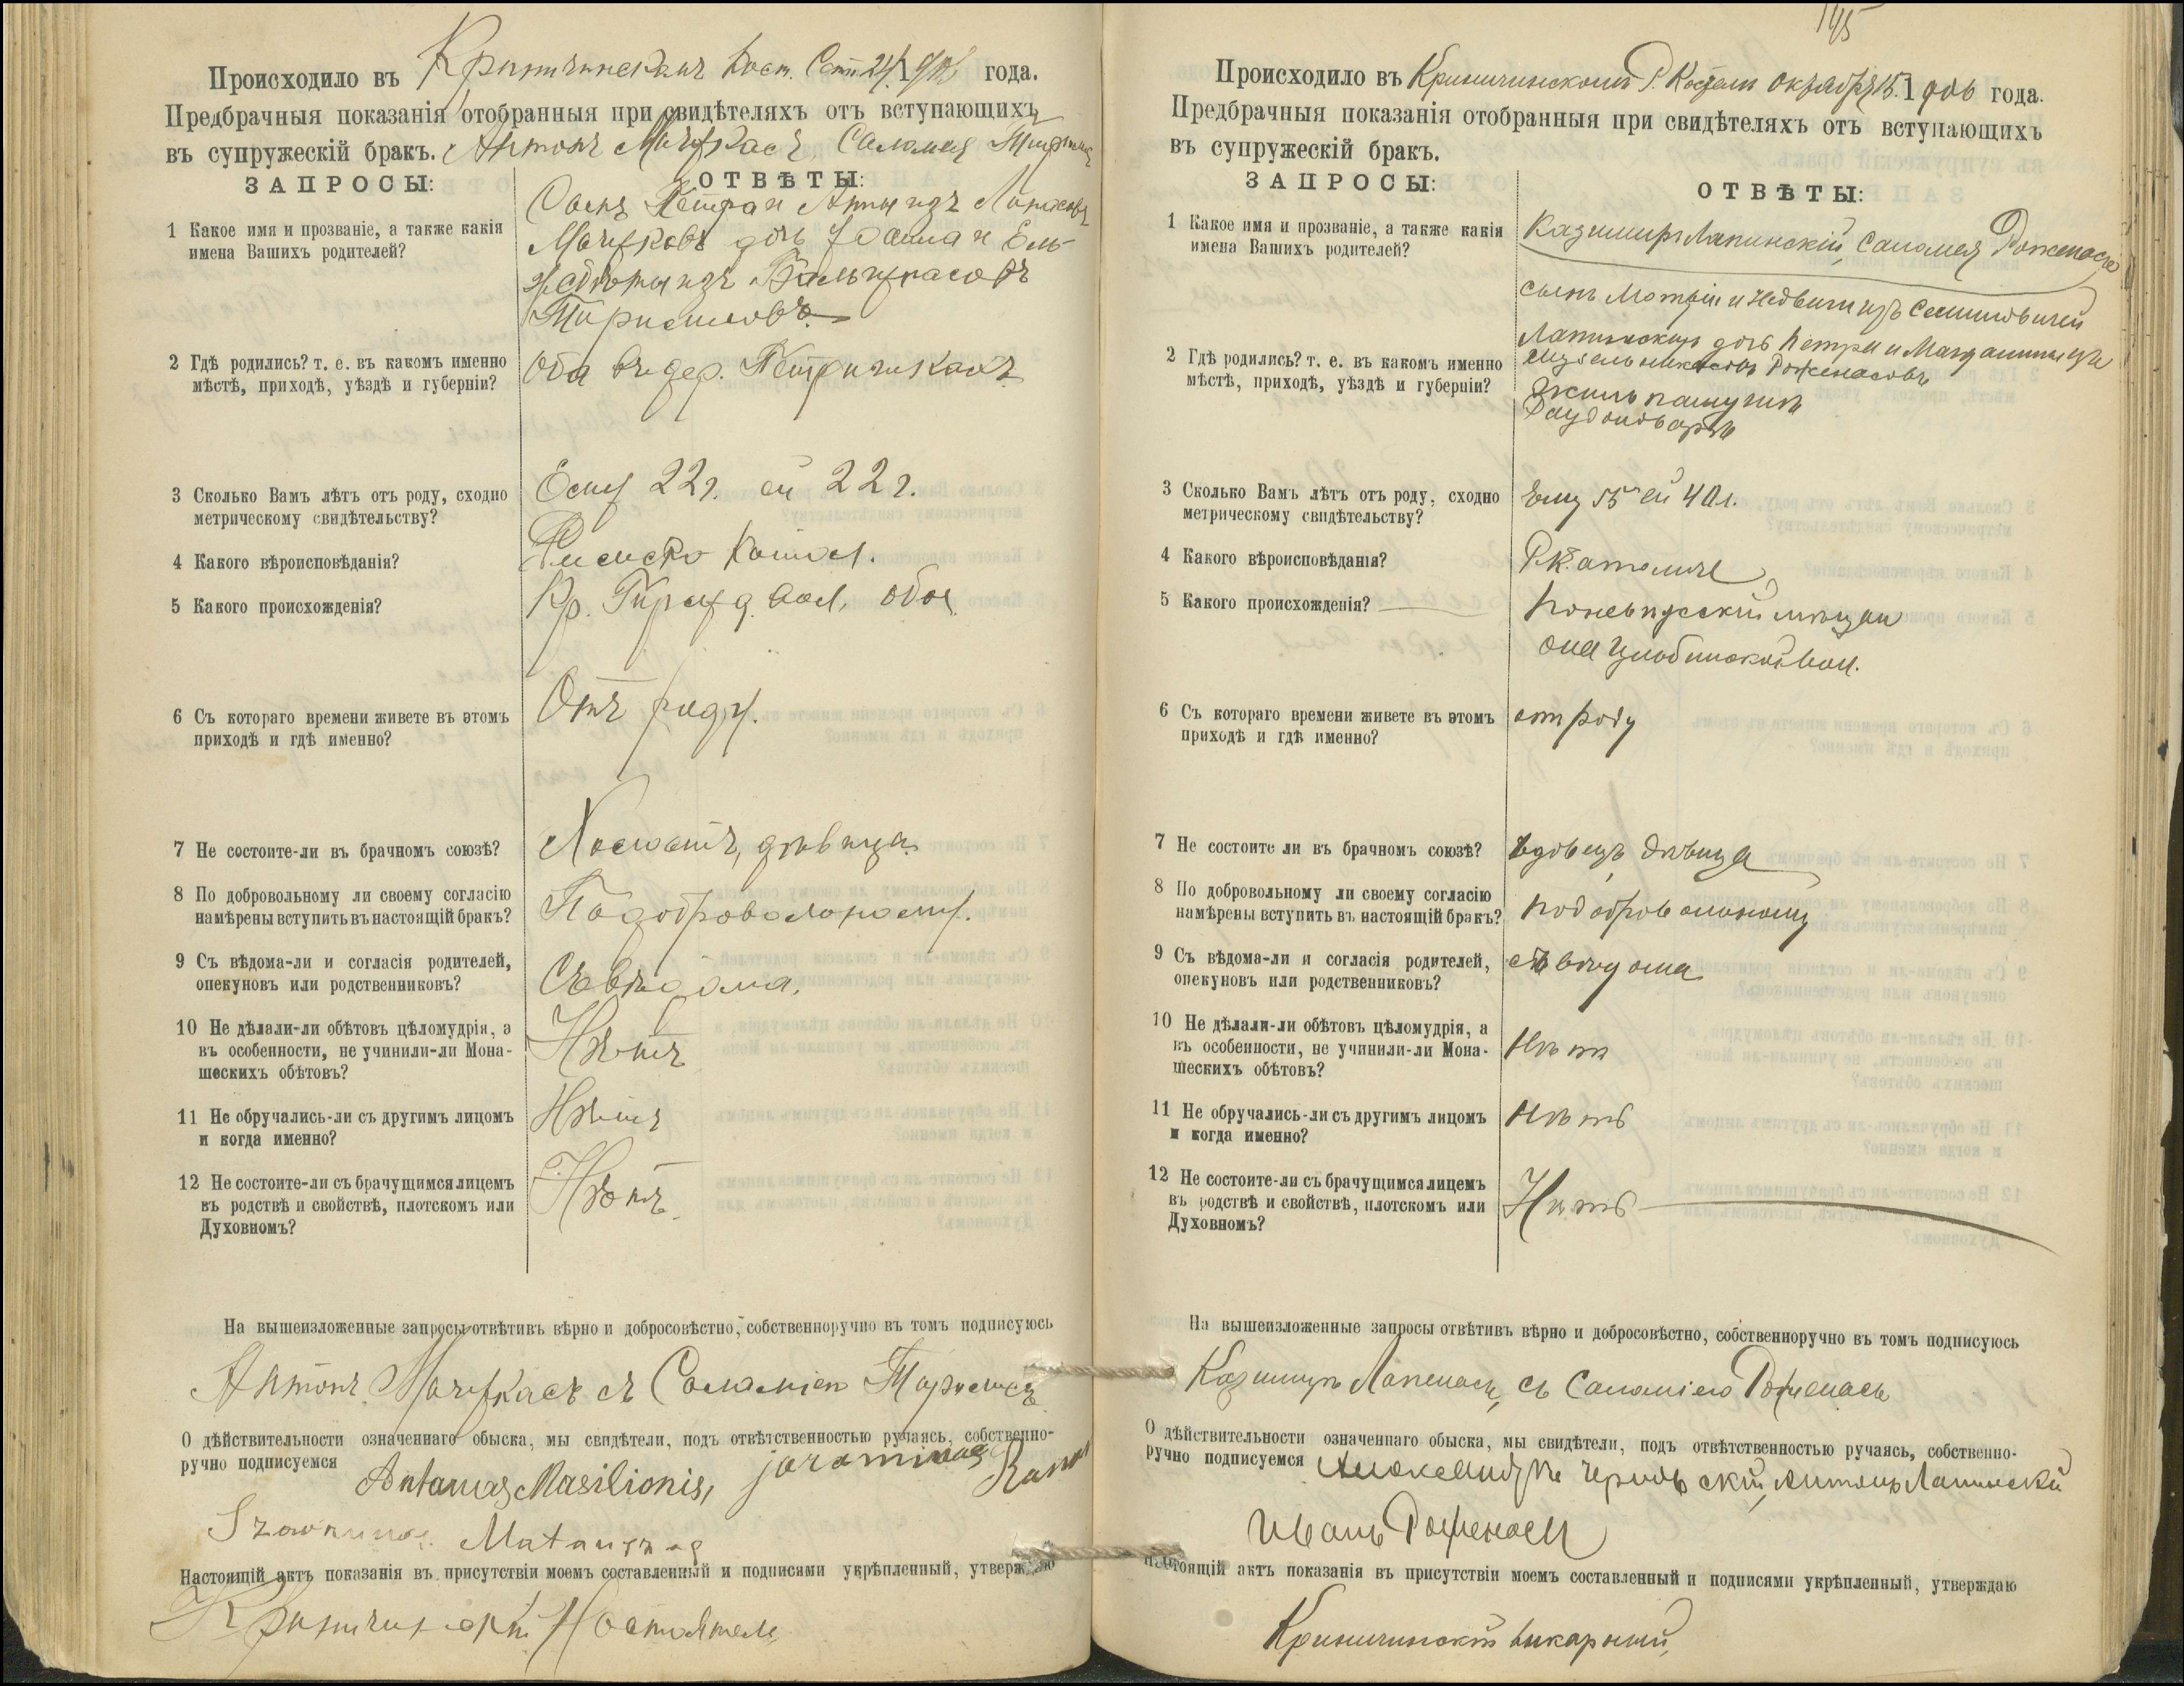 Происходило въ Криничинскомъ Кост. Сент. 24. 1906 года.
Предбрачныя показанія отобранныя при свидѣтеляхъ отъ вступающихъ
въ супружескій бракъ. Антонъ Саломея
ЗАПРОСЫ: ОТВѢТЫ:
1 Какое имя и прозваніе, а также какія
имена Вашихъ родителей?
Сынъ Петра и Анны изъ
дочь и Ель-
жбѣты изъ
2 Гдѣ родились? т. е. въ какомъ именно
мѣстѣ, приходѣ, уѣздѣ и губерніи?
Оба въ дер.
3 Сколько Вамъ лѣтъ отъ роду, сходно
метрическому свидѣтельству?
Ему 22 г. ей 22 г.
4 Какого вѣроисповѣданія?
Римско Катол.
5 Какого происхожденія?
Кр. вол. обое
6 Съ котораго времени живете въ этомъ
приходѣ и гдѣ именно?
Отъ роду.
7 Не состоите-ли въ брачномъ союзѣ?
Холостъ, дѣвица
8 По добровольному ли своему согласію
намѣрены вступить въ настоящій бракъ?
Подобровольному.
9 Съ вѣдома-ли и согласія родителей,
опекуновъ или родственниковъ?
Съ вѣдома.
10 Не дѣлали-ли обѣтовъ цѣломудрія, а
въ особенности, не учинили-ли Мона-
шескихъ обѣтовъ?
Нѣтъ
11 Не обручались-ли съ другимъ лицомъ
и когда именно?
Нѣтъ
12 Не состоите-ли съ брачущимся лицемъ
въ родствѣ и свойствѣ, плотскомъ или
Духовномъ?
Нѣтъ
На вышеизложенные запросы отвѣтивъ вѣрно и добросовѣстно, собственноручно въ томъ подписуюсь
Антонъ съ Саломіею
О дѣйствительности означеннаго обыска, мы свидѣтели, подъ отвѣтственностью ручаясь, собственно-
ручно подписуемся Antanas Masilionis,
Настоящій актъ показанія въ присутствіи моемъ составленный и подписями укрѣпленный, утверждаю
Настоятель
145
Происходило въ Криничинскомъ Р. Костелѣ октября 15. 1906 года.
Предбрачныя показанія отобранныя при свидѣтеляхъ отъ вступающихъ
въ супружескій бракъ.
ЗАПРОСЫ: ОТВѢТЫ:
1 Какое имя и прозваніе, а также какія
имена Вашихъ родителей?
Казимиръ Лапинскій, Саломея Роженасъ
сынъ и изъ
Лапинскихъ дочь Петра и Магдалины изъ
Роженасовъ
2 Гдѣ родились? т. е. въ какомъ именно
мѣстѣ, приходѣ, уѣздѣ и губерніи?
3 Сколько Вамъ лѣтъ отъ роду, сходно
метрическому свидѣтельству?
Ему 55 ей 40 л.
4 Какого вѣроисповѣданія?
Р. Католики
5 Какого происхожденія?
она вол.
6 Съ котораго времени живете въ этомъ
приходѣ и гдѣ именно?
отъ роду
7 Не состоите ли въ брачномъ союзѣ?
вдовецъ, дѣвица
8 По добровольному ли своему согласію
намѣрены вступить въ настоящій бракъ?
подобровольному
9 Съ вѣдома-ли и согласія родителей,
опекуновъ или родственниковъ?
съ вѣдома
10 Не дѣлали-ли обѣтовъ цѣломудрія, а
въ особенности, не учинили-ли Мона-
шескихъ обѣтовъ?
Нѣтъ
11 Не обручались-ли съ другимъ лицомъ
и когда именно?
Нѣтъ
12 Не состоите-ли съ брачущимся лицемъ
въ родствѣ и свойствѣ, плотскомъ или
Духовномъ?
Нѣтъ
На вышеизложенные запросы отвѣтивъ вѣрно и добросовѣстно, собственноручно въ томъ подписуюсь
Казимиръ Лапенасъ, съ Саломіею Роженасъ
О дѣйствительности означеннаго обыска, мы свидѣтели, подъ отвѣтственностью ручаясь, собственно-
ручно подписуемся Александръ Антонъ Лапинскій
Иванъ Роженасъ
Настоящій актъ показанія въ присутствіи моемъ составленный и подписями укрѣпленный, утверждаю
Криничинскій викарный,